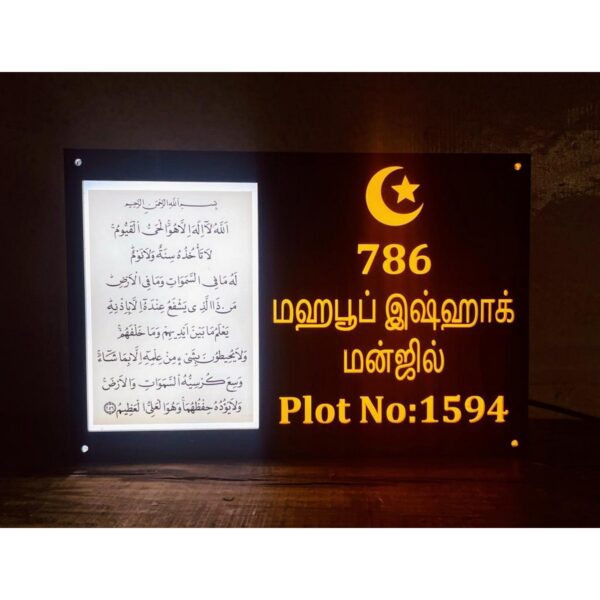 بِسْمِ اللهِ الرَّحْمٰنِ الرَّحِيْمِ
اَللّٰهُ لَآ اِلٰهَ اِلَّا هُوَ الْحَيُّ الْقَيُّوْمُ
لَا تَاْخُذُهٗ سِنَةٌ وَّلَا نَوْمٌ
لَهٗ مَا فِي السَّمٰوَاتِ وَمَا فِي الْاَرْضِ
مَنْ ذَا الَّذِيْ يَشْفَعُ عِنْدَهٗٓ اِلَّا بِاِذْنِهٖ
يَعْلَمُ مَا بَيْنَ اَيْدِيْهِمْ وَمَا خَلْفَهُمْ
وَلَا يُحِيْطُوْنَ بِشَيْءٍ مِّنْ عِلْمِهٖٓ اِلَّا بِمَا شَآءَ
وَسِعَ كُرْسِيُّهُ السَّمٰوَاتِ وَالْاَرْضَ
وَلَا يَئُوْدُهٗ حِفْظُهُمَا وَهُوَ الْعَلِيُّ الْعَظِيْمُ
786
மஹபூப் இஷ்ஹாக்
மன்ஜில்
Plot No:1594